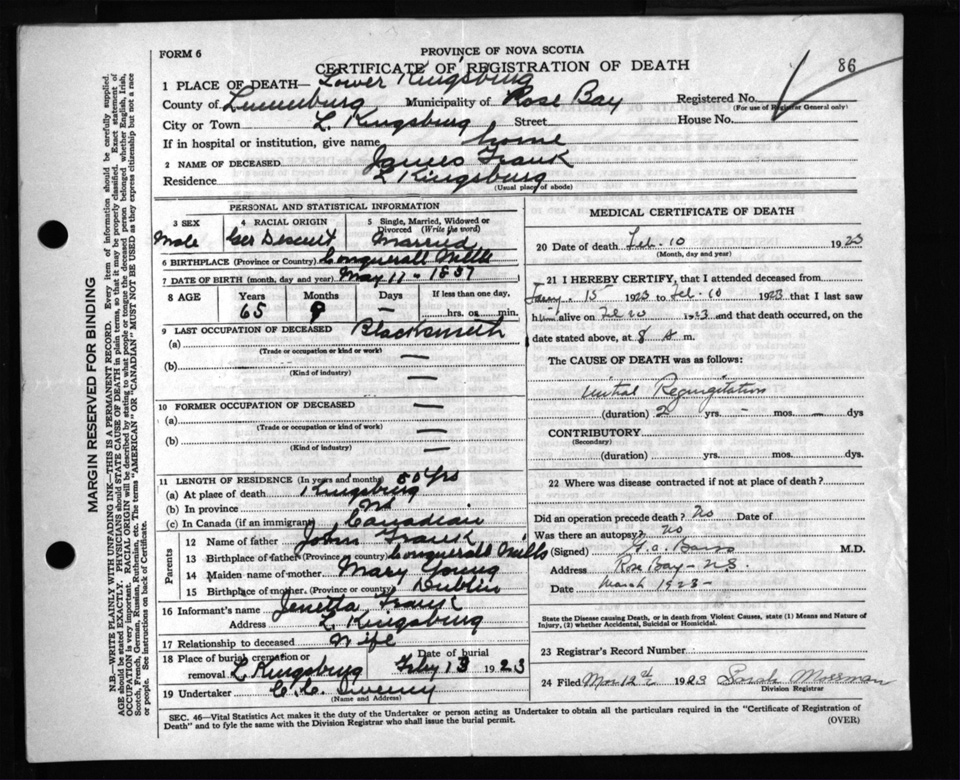 FORM 6
PROVINCE OF NOVA SCOTIA
CERTIFICATE OF REGISTRATION OF DEATH
86
1 PLACE OF DEATH— Lower Kingsburg
County of Lunenburg Municipality of Rose Bay Registered No.
(For use of Registrar General only)
City or Town L. Kingsburg Street House No.
If in hospital or institution, give name home
2 NAME OF DECEASED James Frank
Residence L Kingsburg
(Usual place of abode)
PERSONAL AND STATISTICAL INFORMATION
3 SEX 4 RACIAL ORIGIN 5 Single, Married, Widowed or Divorced (Write the word)
Male Ger Descent Married
6 BIRTHPLACE (Province or Country) Conquerall Mills
7 DATE OF BIRTH (month, day and year) May 11 - 1857
8 AGE Years Months Days If less than one day,
65 9 — hrs. or min.
9 LAST OCCUPATION OF DECEASED Blacksmith
(a)
(Trade or occupation or kind or work)
(b) —
(Kind of industry)
—
10 FORMER OCCUPATION OF DECEASED —
(a)
(Trade or occupation or kind or work) —
(b)
(Kind of industry) —
11 LENGTH OF RESIDENCE (In years and months) 50 yrs
(a) At place of death Kingsburg
(b) In province
(c) In Canada (if an immigrant) Canadian
Parents
12 Name of father John Frank
13 Birthplace of father (Province or country) Conquerall Mills
14 Maiden name of mother Mary Young
15 Birthplace of mother (Province or country) Dublin
16 Informant's name Jenetta Frank
Address L Kingsburg
17 Relationship to deceased Wife
18 Place of burial cremation or removal L Kingsburg Date of burial Feby 13 1923
19 Undertaker
(Name and Address)
MEDICAL CERTIFICATE OF DEATH
20 Date of death Feb. 10 1923
(Month, day and year)
21 I HEREBY CERTIFY, that I attended deceased from
15 1923 to Feb. 10 1923 that I last saw
him alive on 1923 and that death occurred, on the
date stated above, at 8 a m.
The CAUSE OF DEATH was as follows:
Mitral Regurgitation
(duration) 2 yrs. - mos. - dys
CONTRIBUTORY
(Secondary)
(duration) yrs. mos. dys
22 Where was disease contracted if not at place of death?
Did an operation precede death? No Date of
Was there an autopsy? No
(Signed) M.D.
Address Rose Bay - N.S.
Date March 1923 -
State the Disease causing Death, or in death from Violent Causes, state (1) Means and Nature of
Injury, (2) whether Accidental, Suicidal or Homicidal.
23 Registrar's Record Number
24 Filed Mar 12th 1923 Sarah Mossman
Division Registrar
SEC. 46—Vital Statistics Act makes it the duty of the Undertaker or person acting as Undertaker to obtain all the particulars required in the "Certificate of Registration of
Death" and to fyle the same with the Division Registrar who shall issue the burial permit.
(OVER)
MARGIN RESERVED FOR BINDING
N.B.—WRITE PLAINLY WITH UNFADING INK—THIS IS A PERMANENT RECORD. Every item of information should be carefully supplied.
AGE should be stated EXACTLY. PHYSICIANS should STATE CAUSE OF DEATH in plain terms, so that it may be properly classified. Exact statement of
OCCUPATION is very important. RACIAL ORIGIN will be described by stating to what people or tongue the deceased person belonged whether English, Irish,
Scotch, French, German, Russian, Ruthenian, etc. The terms "AMERICAN" OR "CANADIAN" MUST NOT BE USED as they express citizenship but not a race
or people. See instructions on back of Certificate.